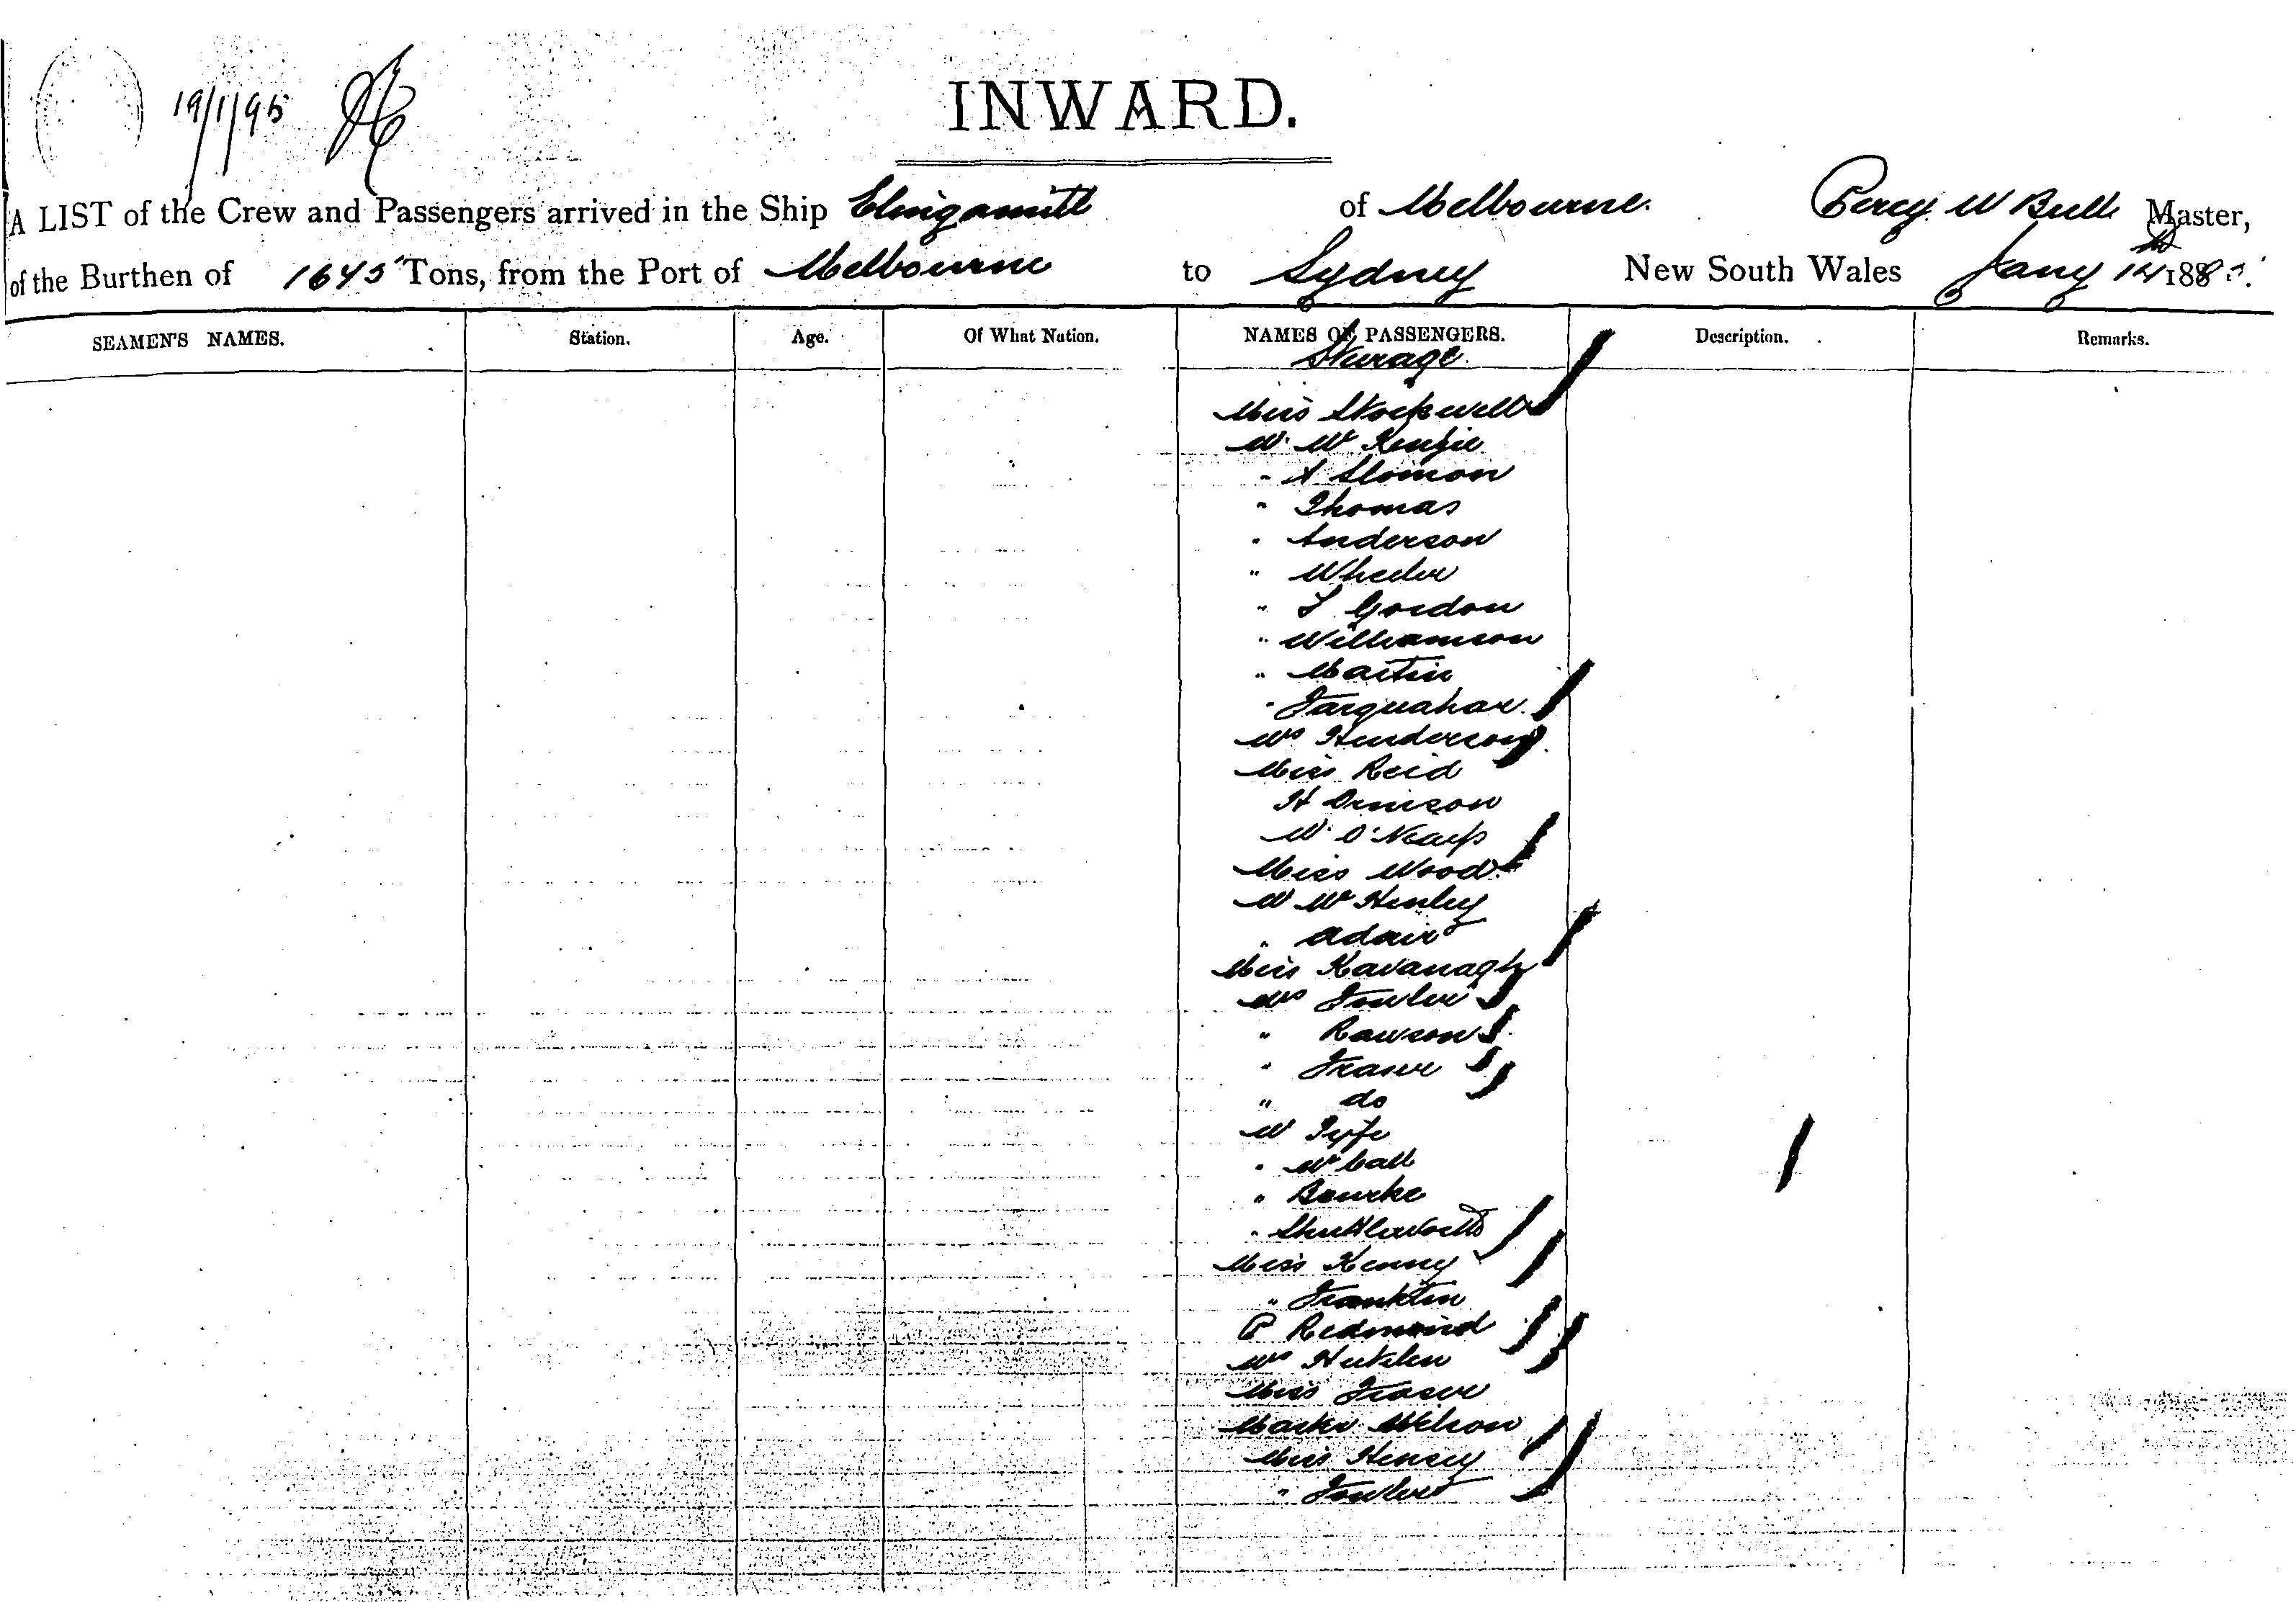 19/1/95
INWARD.
A LIST of the Crew and Passengers arrived in the Ship Elingamite of Melbourne. Percy W Bull Master,
of the Burthen of 1675 Tons, from the Port of Melbourne to Sydney New South Wales Jany 188
SEAMEN'S NAMES. Station. Age. Of What Nation. NAMES OF PASSENGERS. Description. Remarks.
Steerage.
Miss Stockwell
Mr McKenzie
" A Slomon
" Thomas
" Anderson
" Wheeler
" Gordon
" Williamson
" Martin
" Farquahar
Mrs Henderson
Miss Reid
H Denison
W
Miss Wood
Mr McHenley
" Adair
Miss Kavanagh
Mrs Fowler
" Rawson
" Fraser
" do
Mr Fyfe
" McCall
" Bourke
" Shuttleworth
Miss Kenny
" Franklin
P Redmond
Mrs
Miss Fraser
Master Wilson
Miss Henry
" Fowler